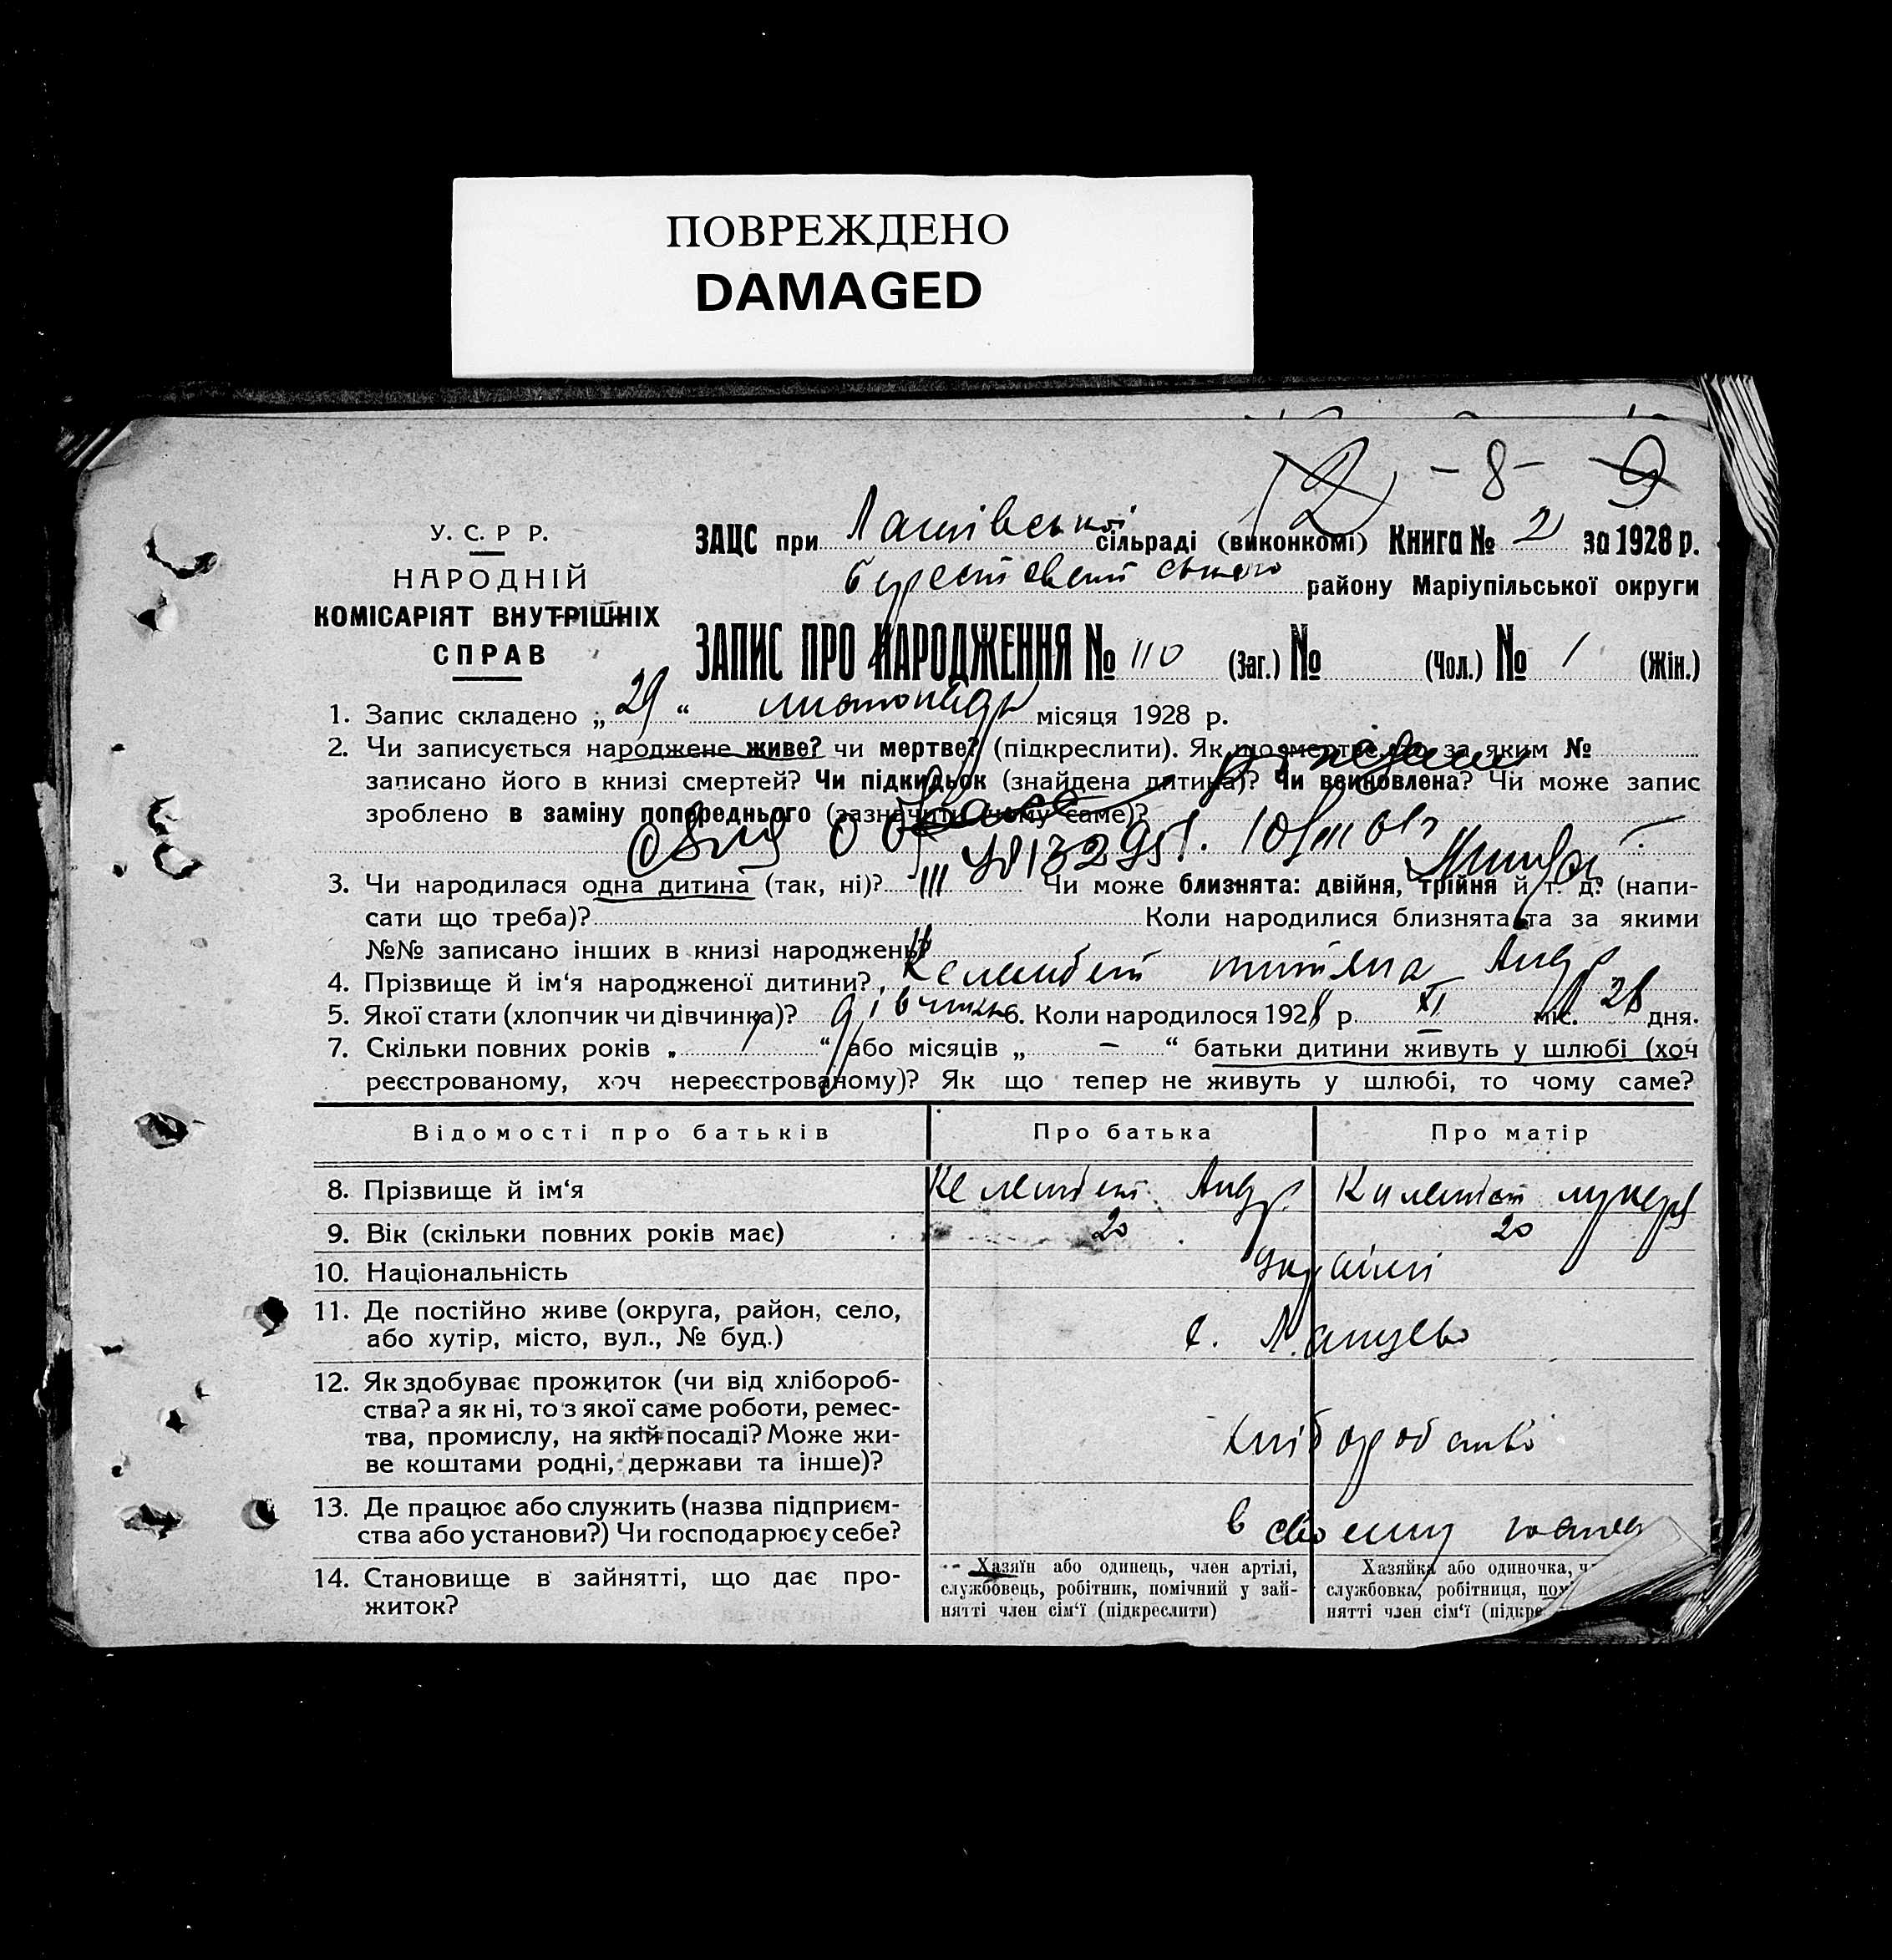 ПОВРЕЖДЕНО
DAMAGED
2 - 8 - 9
У. С. Р Р.
НАРОДНІЙ
КОМІСАРІЯТ ВНУТРІШНІХ
СПРАВ
ЗАЦС при сільраді (виконкомі) Книга № 2 за 1928 р.
району Маріупільської округи
ЗАПИС ПРО НАРОДЖЕННЯ № 110 (Заг.) № (Чол.) № 1 (Жін.)
1. Запис складено „ 29 “ листопада місяця 1928 р.
2. Чи записується народжене живе? чи мертве? (підкреслити). Як що мертве, то за яким №
записано його в книзі смертей? Чи підкидьок (знайдена дитина)? Чи всиновлена? Чи може запис
зроблено в заміну попереднього (зазначити чому саме)?
3. Чи народилася одна дитина (так, ні)? Чи може близнята: двійня, трійня й т. д? (напи-
сати що треба)? Коли народилися близнята та за якими
№№ записано інших в книзі народжень?
4. Прізвище й ім‘я народженої дитини? Келембет Андр
5. Якої стати (хлопчик чи дівчинка)? дівчинка 6. Коли народилося 1928 р. XI міс. 28 дня.
7. Скільки повних років „ 1 “ або місяців „ — “ батьки дитини живуть у шлюбі (хоч
реєстрованому, хоч нереєстрованому)? Як що тепер не живуть у шлюбі, то чому саме?
Відомості про батьків Про батька Про матір
8. Прізвище й ім‘я Келембет Андр. Килембет Лукеря
9. Вік (скільки повних років має) 20 20
10. Національність Україні
11. Де постійно живе (округа, район, село,
або хутір, місто, вул., № буд.) с.
12. Як здобуває прожиток (чи від хлібороб-
ства? а як ні, то з якої саме роботи, ремес-
тва, промислу, на якій посаді? Може жи-
ве коштами родні, держави та інше)? хліборобство
13. Де працює або служить (назва підприєм-
ства або установи?) Чи господарює у себе? в своему
14. Становище в зайнятті, що дає про-
житок?
Хазяїн або одинець, член артілі,
службовець, робітник, помічний у зай-
нятті член сім‘ї (підкреслити)
Хазяйка або одиночка, ч
службовка, робітниця, пом
нятті член сім‘ї (підкре